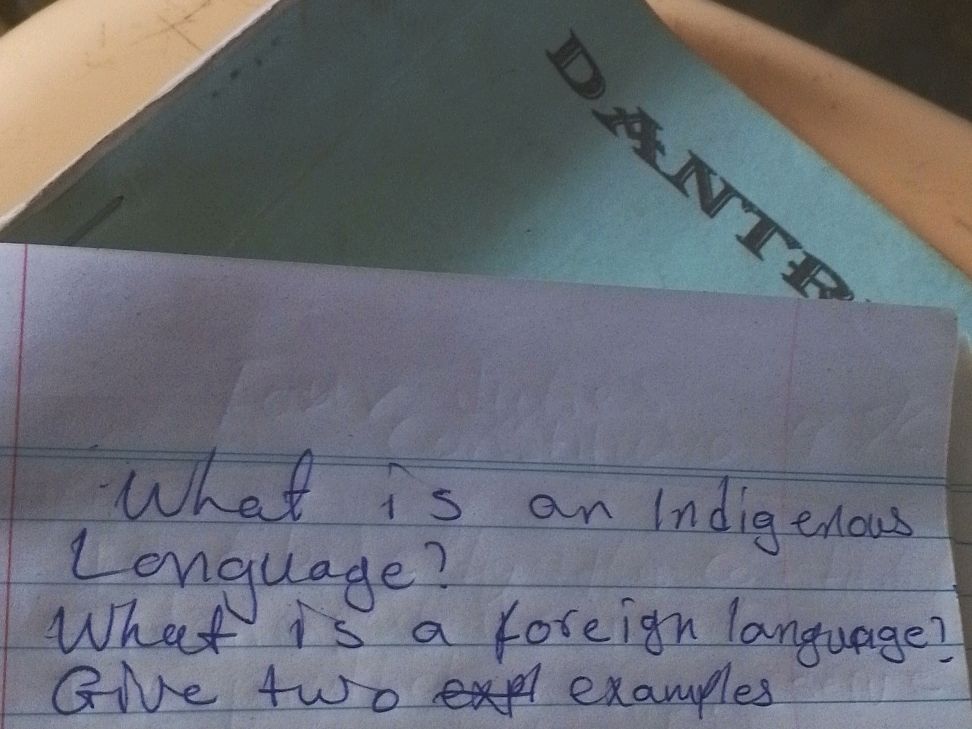 DANTR
What is an Indigenous
Language?
What is a foreign language?
Give two expl examples